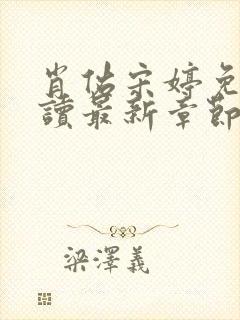 肖估宋婷免
讀最新章節
梁澤義